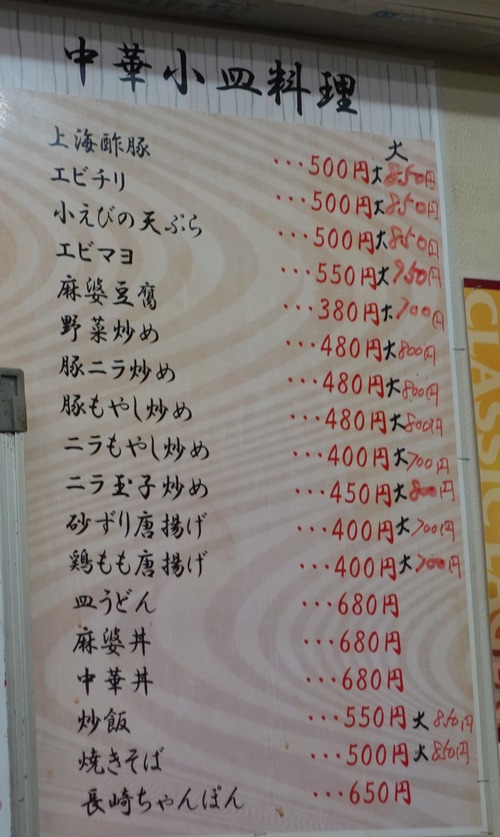 中華小皿料理
大
上海酢豚 …500円大850円
エビチリ …500円大850円
小えびの天ぷら …500円大850円
エビマヨ …550円大950円
麻婆豆腐 …380円大700円
野菜炒め …480円大800円
豚ニラ炒め …480円大800円
豚もやし炒め …480円大800円
ニラもやし炒め …400円大700円
ニラ玉子炒め …450円大800円
砂ずり唐揚げ …400円大700円
鶏もも唐揚げ …400円大700円
皿うどん …680円
麻婆丼 …680円
中華丼 …680円
炒飯 …550円大850円
焼きそば …500円大850円
長崎ちゃんぽん …650円
CLASSIC